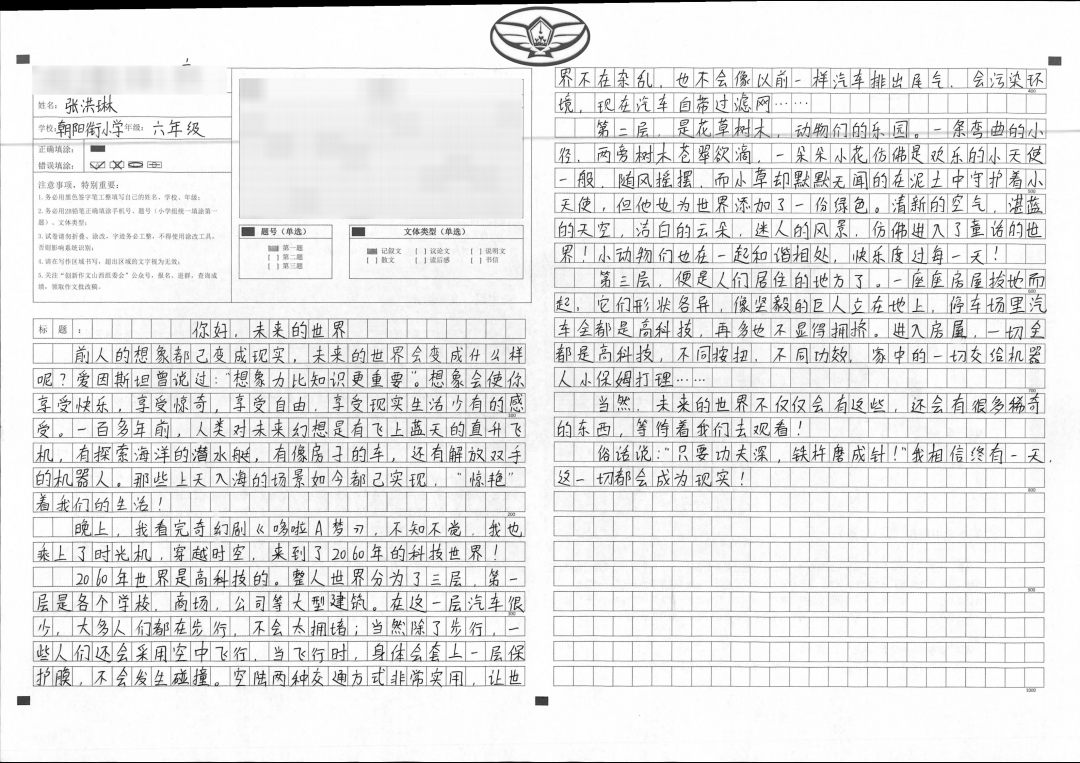 姓名：张洪琳
学校：朝阳街小学 年级：六年级
正确填涂：
错误填涂：
注意事项，特别重要：
1.务必用黑色签字笔工整填写自己的姓名、学校、年级；
2.务必用2B铅笔正确填涂手机号、题号（小学组统一填涂第一
题）、文体类型；
3.试卷请勿折叠、涂改，字迹务必工整，不得使用涂改工具，
否则影响系统识别；
4.请在写作区域书写，超出区域的文字视为无效；
5.关注“创新作文山西组委会”公众号，报名、进群、查询成
绩、领取作文批改稿。
题号（单选）
第一题
[ ] 第二题
[ ] 第三题
文体类型（单选）
记叙文 [ ] 议论文 [ ] 说明文
[ ] 散文 [ ] 读后感 [ ] 书信
标 题：你好，未来的世界
前人的想象都已变成现实，未来的世界会变成什么样
呢？爱因斯坦曾说过：“想象力比知识更重要”。想象会使你
享受快乐，享受惊奇，享受自由，享受现实生活少有的感
受。一百多年前，人类对未来幻想是有飞上蓝天的直升飞
机，有探索海洋的潜水艇，有像房子的车，还有解放双手
的机器人。那些上天入海的场景如今都已实现，“惊艳”
着我们的生活！
晚上，我看完奇幻剧《哆啦A梦》，不知不觉，我也
乘上了时光机，穿越时空，来到了2060年的科技世界！
2060年世界是高科技的。整人世界分为了三层，第一
层是各个学校，商场，公司等大型建筑。在这一层汽车很
少，大多人们都在步行，不会太拥堵；当然除了步行，一
些人们还会采用空中飞行，当飞行时，身体会套上一层保
护膜，不会发生碰撞。空陆两种交通方式非常实用，让世
界不在杂乱，也不会像以前一样汽车排出尾气，会污染环
境，现在汽车自带过滤网……
第二层，是花草树木，动物们的乐园。一条弯曲的小
径，两旁树木苍翠欲滴，一朵朵小花仿佛是欢乐的小天使
一般，随风摇摆，而小草却默默无闻的在泥土中守护着小
天使，但他也为世界添加了一份绿色。清新的空气，湛蓝
的天空，洁白的云朵，迷人的风景，仿佛进入了童话的世
界！小动物们也在一起和谐相处，快乐度过每一天！
第三层，便是人们居住的地方了。一座座房屋拔地而
起，它们形状各异，像坚毅的巨人立在地上，停车场里汽
车全都是高科技，再多也不显得拥挤。进入房屋，一切全
都是高科技，不同按扭，不同功效，家中的一切交给机器
人小保姆打理……
当然，未来的世界不仅仅会有这些，还会有很多稀奇
的东西，等待着我们去观看！
俗话说：“只要功夫深，铁杵磨成针！”我相信终有一天，
这一切都会成为现实！